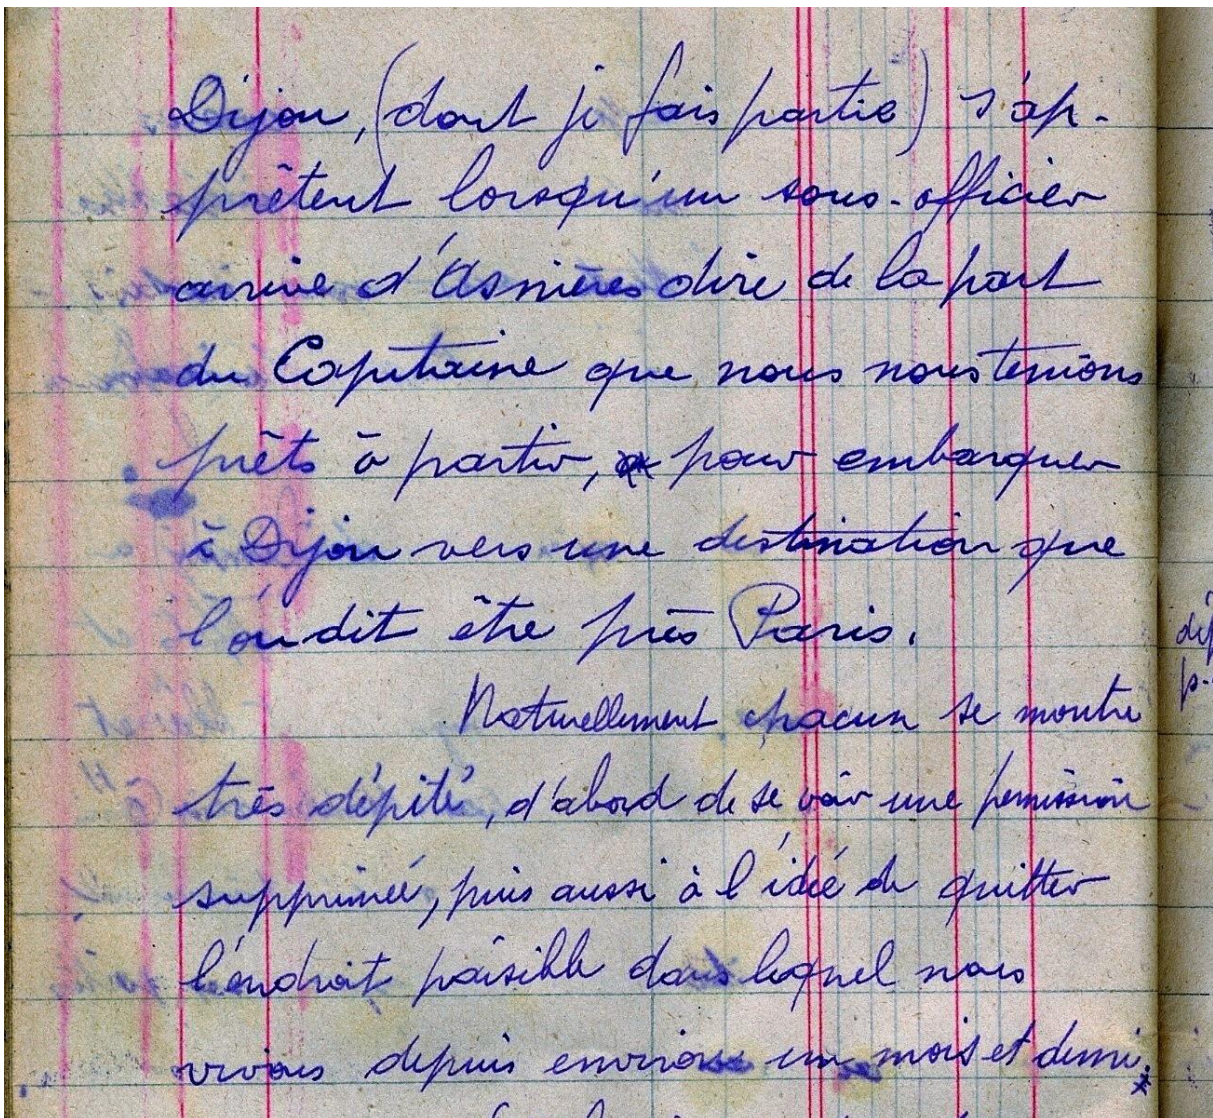 Dijon, (dont je fais partie) s'ap-
prêtent lorsqu'un sous-officier
arrive d'Asnières dire de la part
du Capitaine que nous nous tenions
prêts à partir, pour embarquer
à Dijon vers une destination que
l'on dit être près Paris.
Naturellement chacun se montre
très dépité, d'abord de se voir une permission
supprimée, puis aussi à l'idée de quitter
l'endroit paisible dans lequel nous
vivions depuis environ un mois et demi.